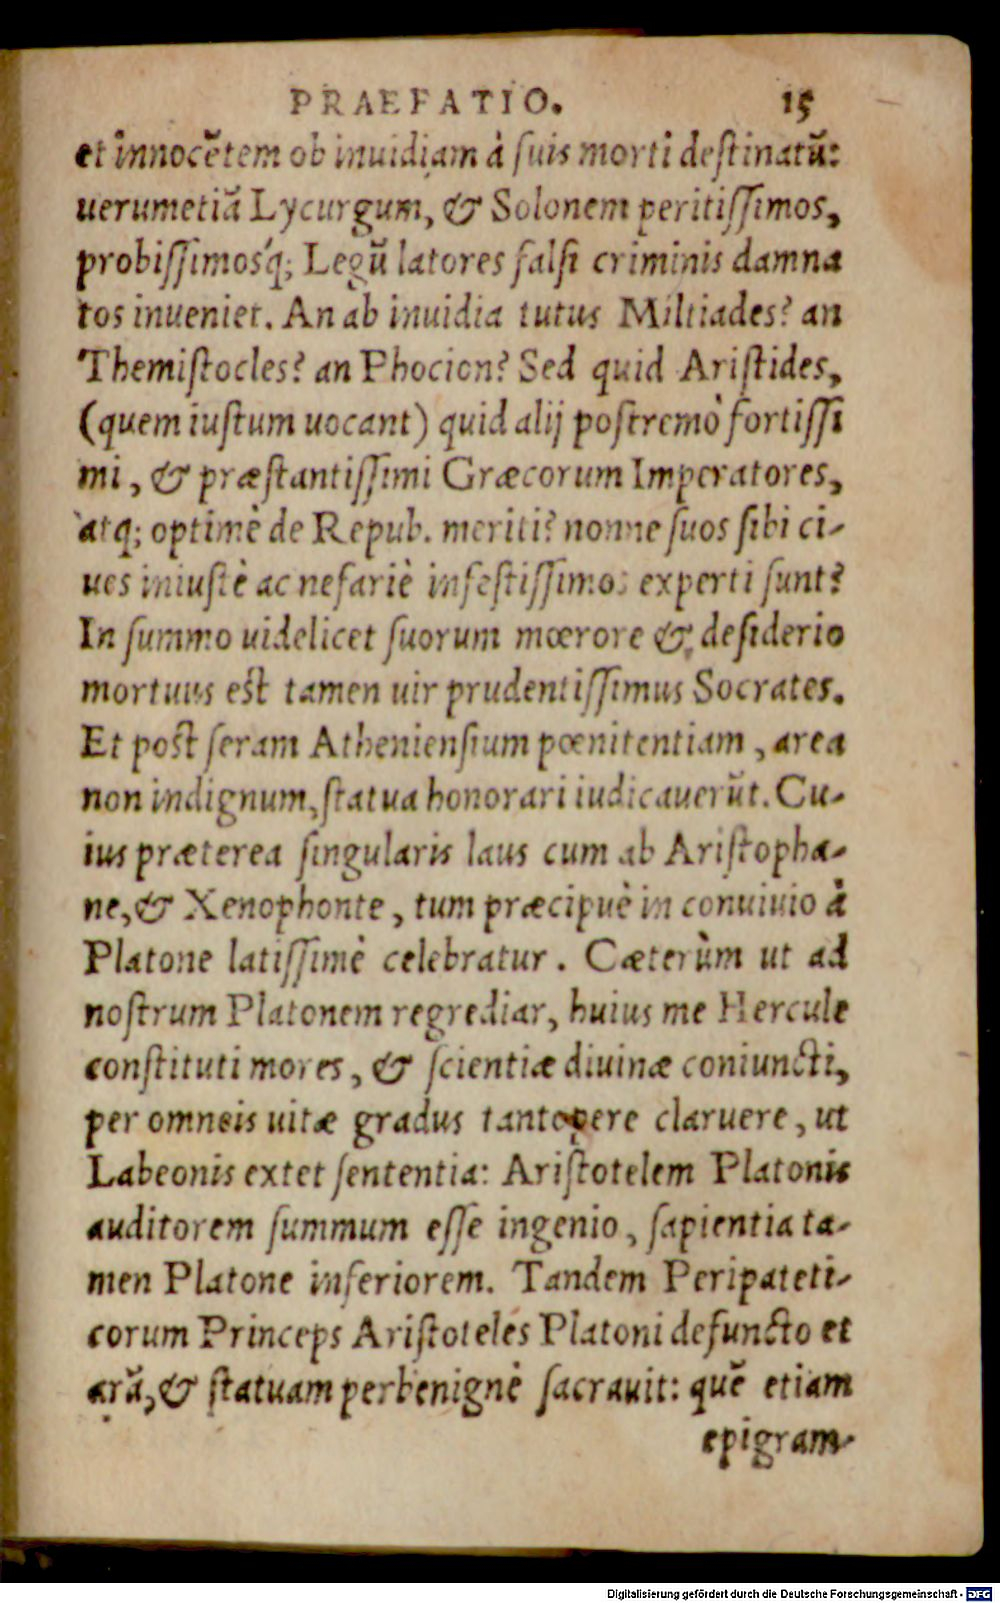 PRAEFATIO. 15
et innocẽtem ob inuidiam à suis morti destinatũ:
uerumetiã Lycurgum, & Solonem peritissimos,
probissimosq́; Legũ latores falsi criminis damna
tos inueniet. An ab inuidia tutus Miltiades? an
Themistocles? an Phocion? Sed quid Aristides,
(quem iustum uocant) quid alij postremò fortissi
mi, & præstantissimi Græcorum Imperatores,
atq; optimè de Repub. meriti? nonne suos sibi ci-
ues iniustè ac nefariè infestissimos experti sunt?
In summo uidelicet suorum mœrore & desiderio
mortuus est tamen uir prudentissimus Socrates.
Et post seram Atheniensium pœnitentiam, area
non indignum, statua honorari iudicauerũt. Cu-
ius præterea singularis laus cum ab Aristopha-
ne, & Xenophonte, tum præcipuè in conuiuio à
Platone latissimè celebratur. Cæterùm ut ad
nostrum Platonem regrediar, huius me Hercule
constituti mores, & scientiæ diuinæ coniuncti,
per omneis uitæ gradus tantopere claruere, ut
Labeonis extet sententia: Aristotelem Platonis
auditorem summum esse ingenio, sapientia ta-
men Platone inferiorem. Tandem Peripateti-
corum Princeps Aristoteles Platoni defuncto et
arã, & statuam perbenignè sacrauit: quẽ etiam
epigram-
Digitalisierung gefördert durch die Deutsche Forschungsgemeinschaft - DFG